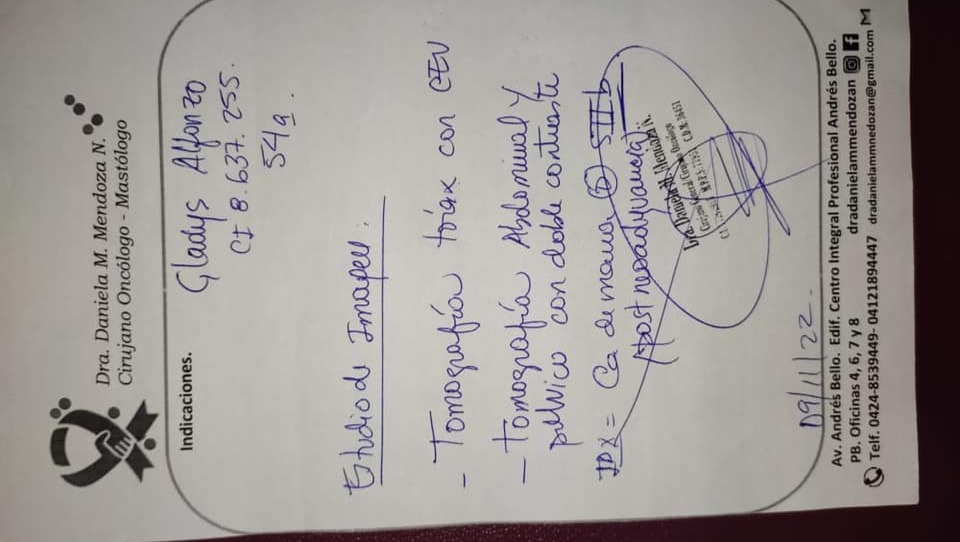 Dra. Daniela M. Mendoza N.
Cirujano Oncólogo - Mastólogo
Indicaciones.
Gladys Alfonzo
CI 8.637.255.
54a.
Estudio de Imagen:
- Tomografía tórax con CEV
- Tomografía Abdominal y
pelvico con doble contraste
IDX = Ca de mama STIIIb
(post neoadyuvancia)
Dra. Daniela M. Mendoza N.
Cirujano General Cirujano Oncólogo
09/11/22.
Av. Andrés Bello. Edif. Centro Integral Profesional Andrés Bello.
PB. Oficinas 4, 6, 7 y 8 dradanielammendozan
Telf. 0424-8539449- 04121894447 dradanielammnedozan@gmail.com